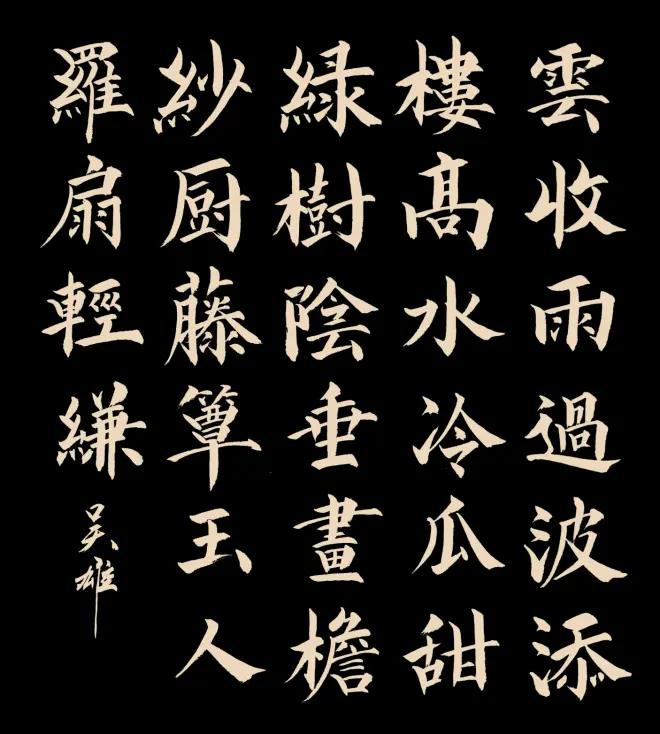 雲收雨過波添
樓髙水冷瓜甜
緑樹陰垂畫檐
紗厨藤簟玉人
羅扇輕縑
吴雄